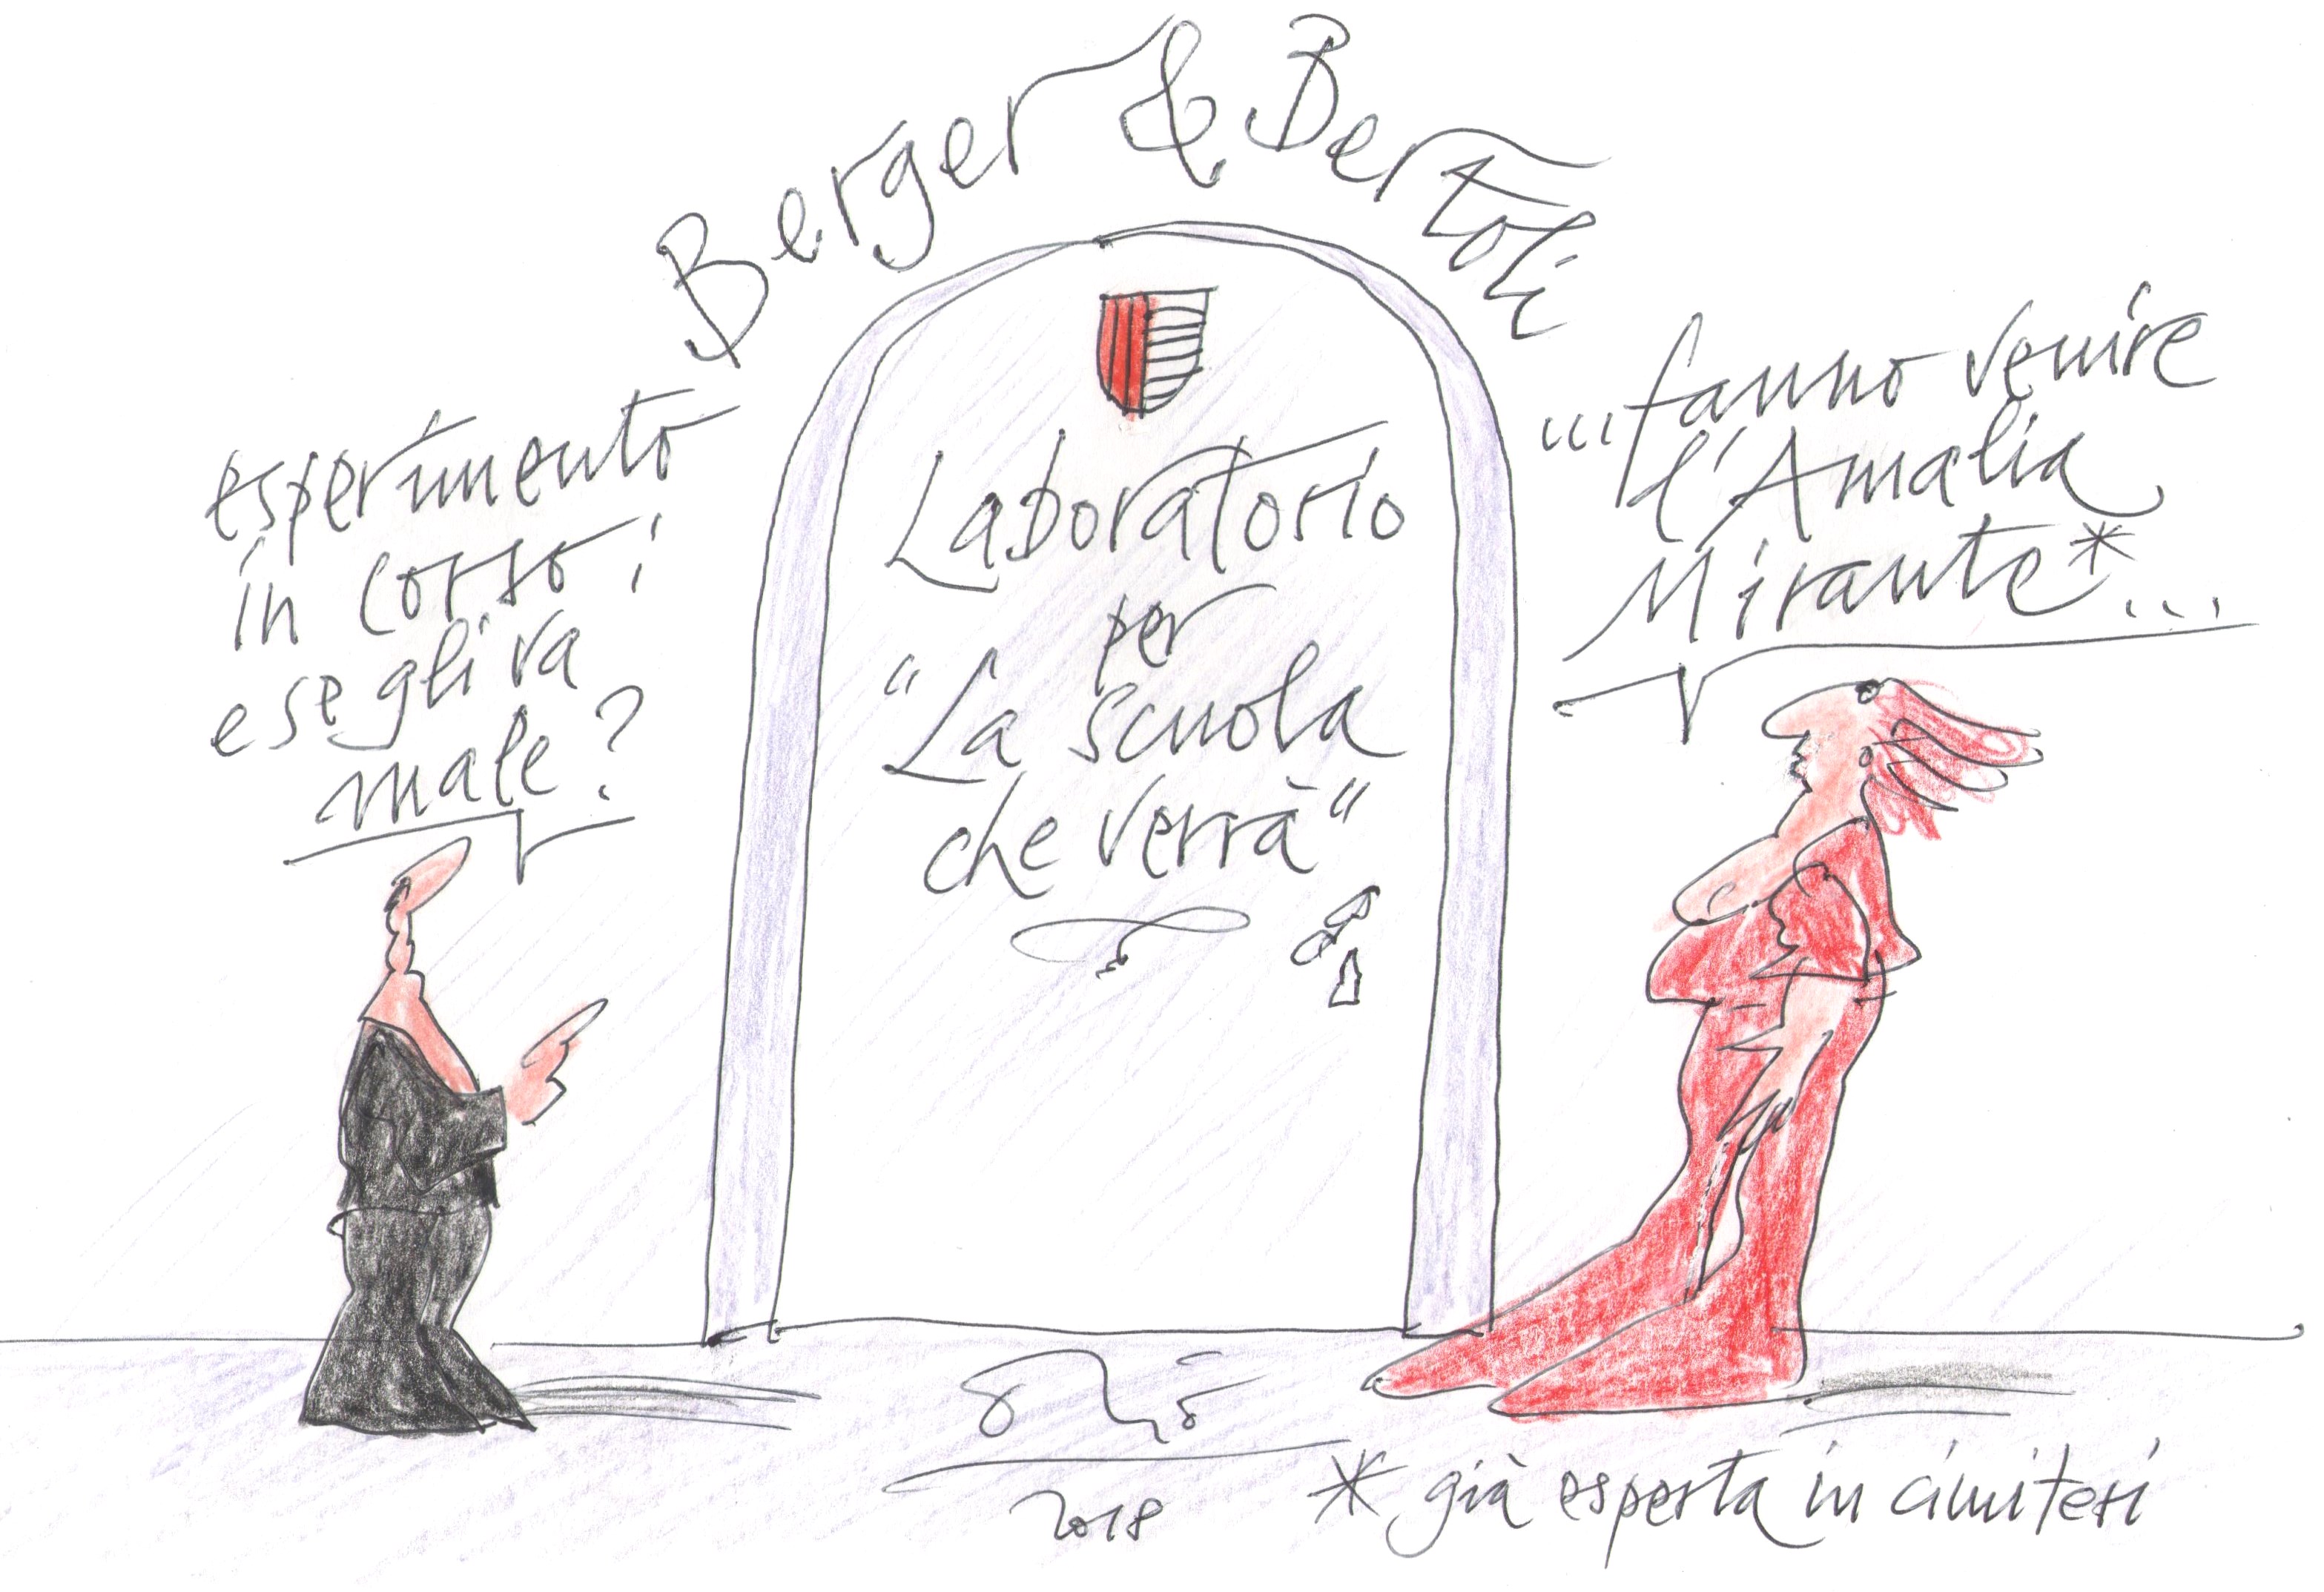 Berger & Bertoli
esperimento
in corso:
e se gli va
male?
Laboratorio
per
"La scuola
che verrà"
...fanno venire
l'Amalia
Mirante*...
2018
* già esperta in cimiteri